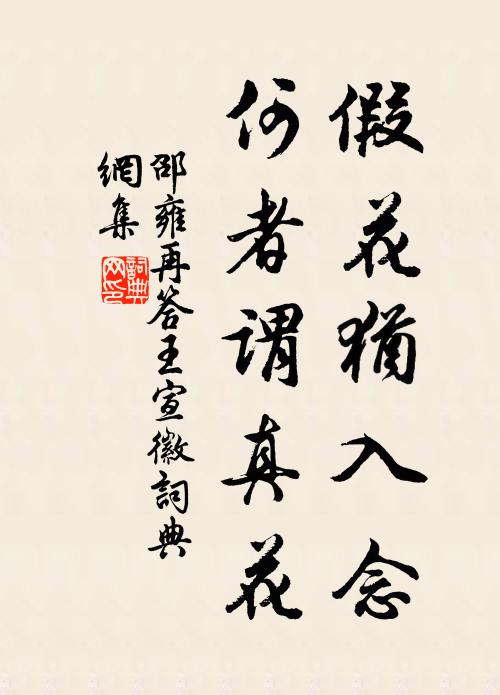 假花猶入念
何者謂真花
邵雍再答王宣徽詞典
網集
詞典網印